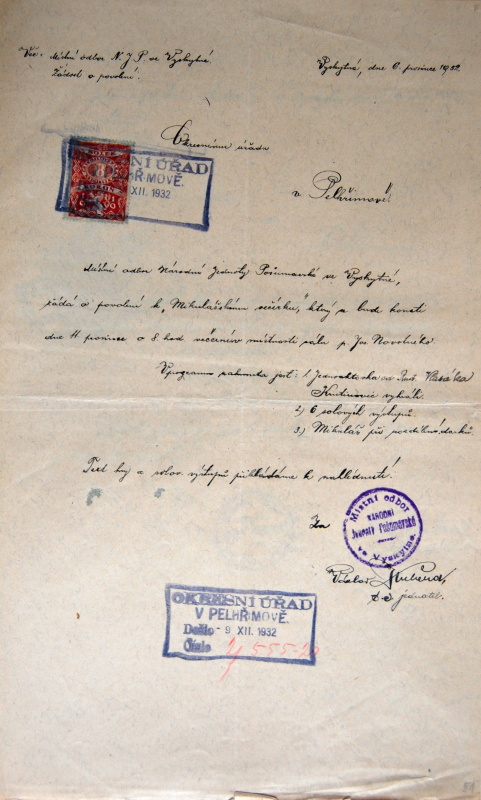 Věc: Místní odbor N. J. P. ve Vyskytné.
Žádost o povolení.
Vyskytná, dne 6. prosince 1932
Okresnímu úřadu
NÍ ÚŘAD
HŘIMOVĚ.
XII. 1932
v Pelhřimově!
Místní odbor Národní Jednoty Pošumavské ve Vyskytné,
žádá o povolení k „Mikulášskému večírku", který se bude konati
dne 11 prosince o 8 hod večer v místnosti sálu p. Jos Novotného.
V programu zahrnuto jest: 1. Jednoaktovka od
vyhrál.
2) 6 solových výstupů.
3.) Mikuláš při rozdílení dárků.
Text hry a solov. výstupů přikládáme k nahlédnutí.
Za
Místní odbor
NÁRODNÍ
Jednoty Pošumavské
ve Vyskytné.
t. č. jednatel.
OKRESNÍ ÚŘAD
V PELHŘIMOVĚ.
Došlo - 9 XII. 1932
Číslo